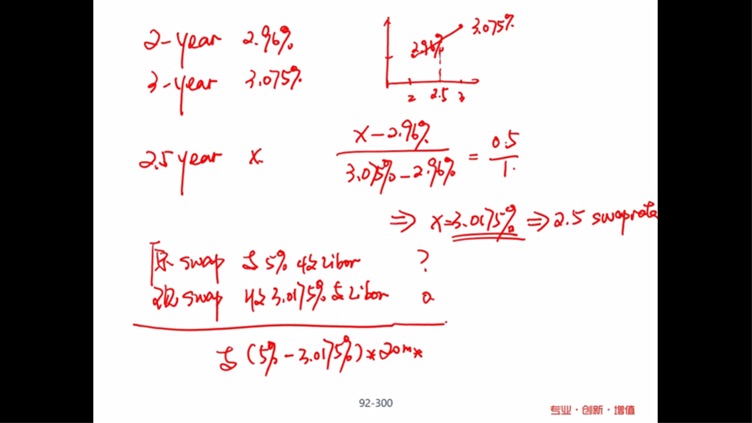 2-year 2.96%
3-year 3.075%
3.075%
2.96%
2 2.5 3
2.5 year x
x-2.96%
3.075%-2.96%
= 0.5
1
⇒ x=3.0175% ⇒ 2.5 swap rate
原 swap 支 5% 收 Libor ?
现 swap 收 3.0175% 支 Libor 0
支 (5%-3.0175%)*20m*
92-300
专业·创新·增值